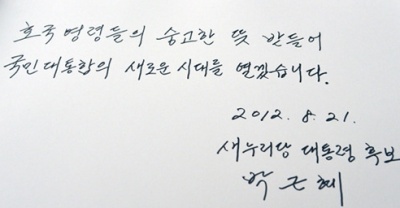 호국영령들의 숭고한 뜻 받들어
국민대통합의 새로운 시대를 열겠습니다.
2012. 8. 21.
새누리당 대통령 후보
박근혜